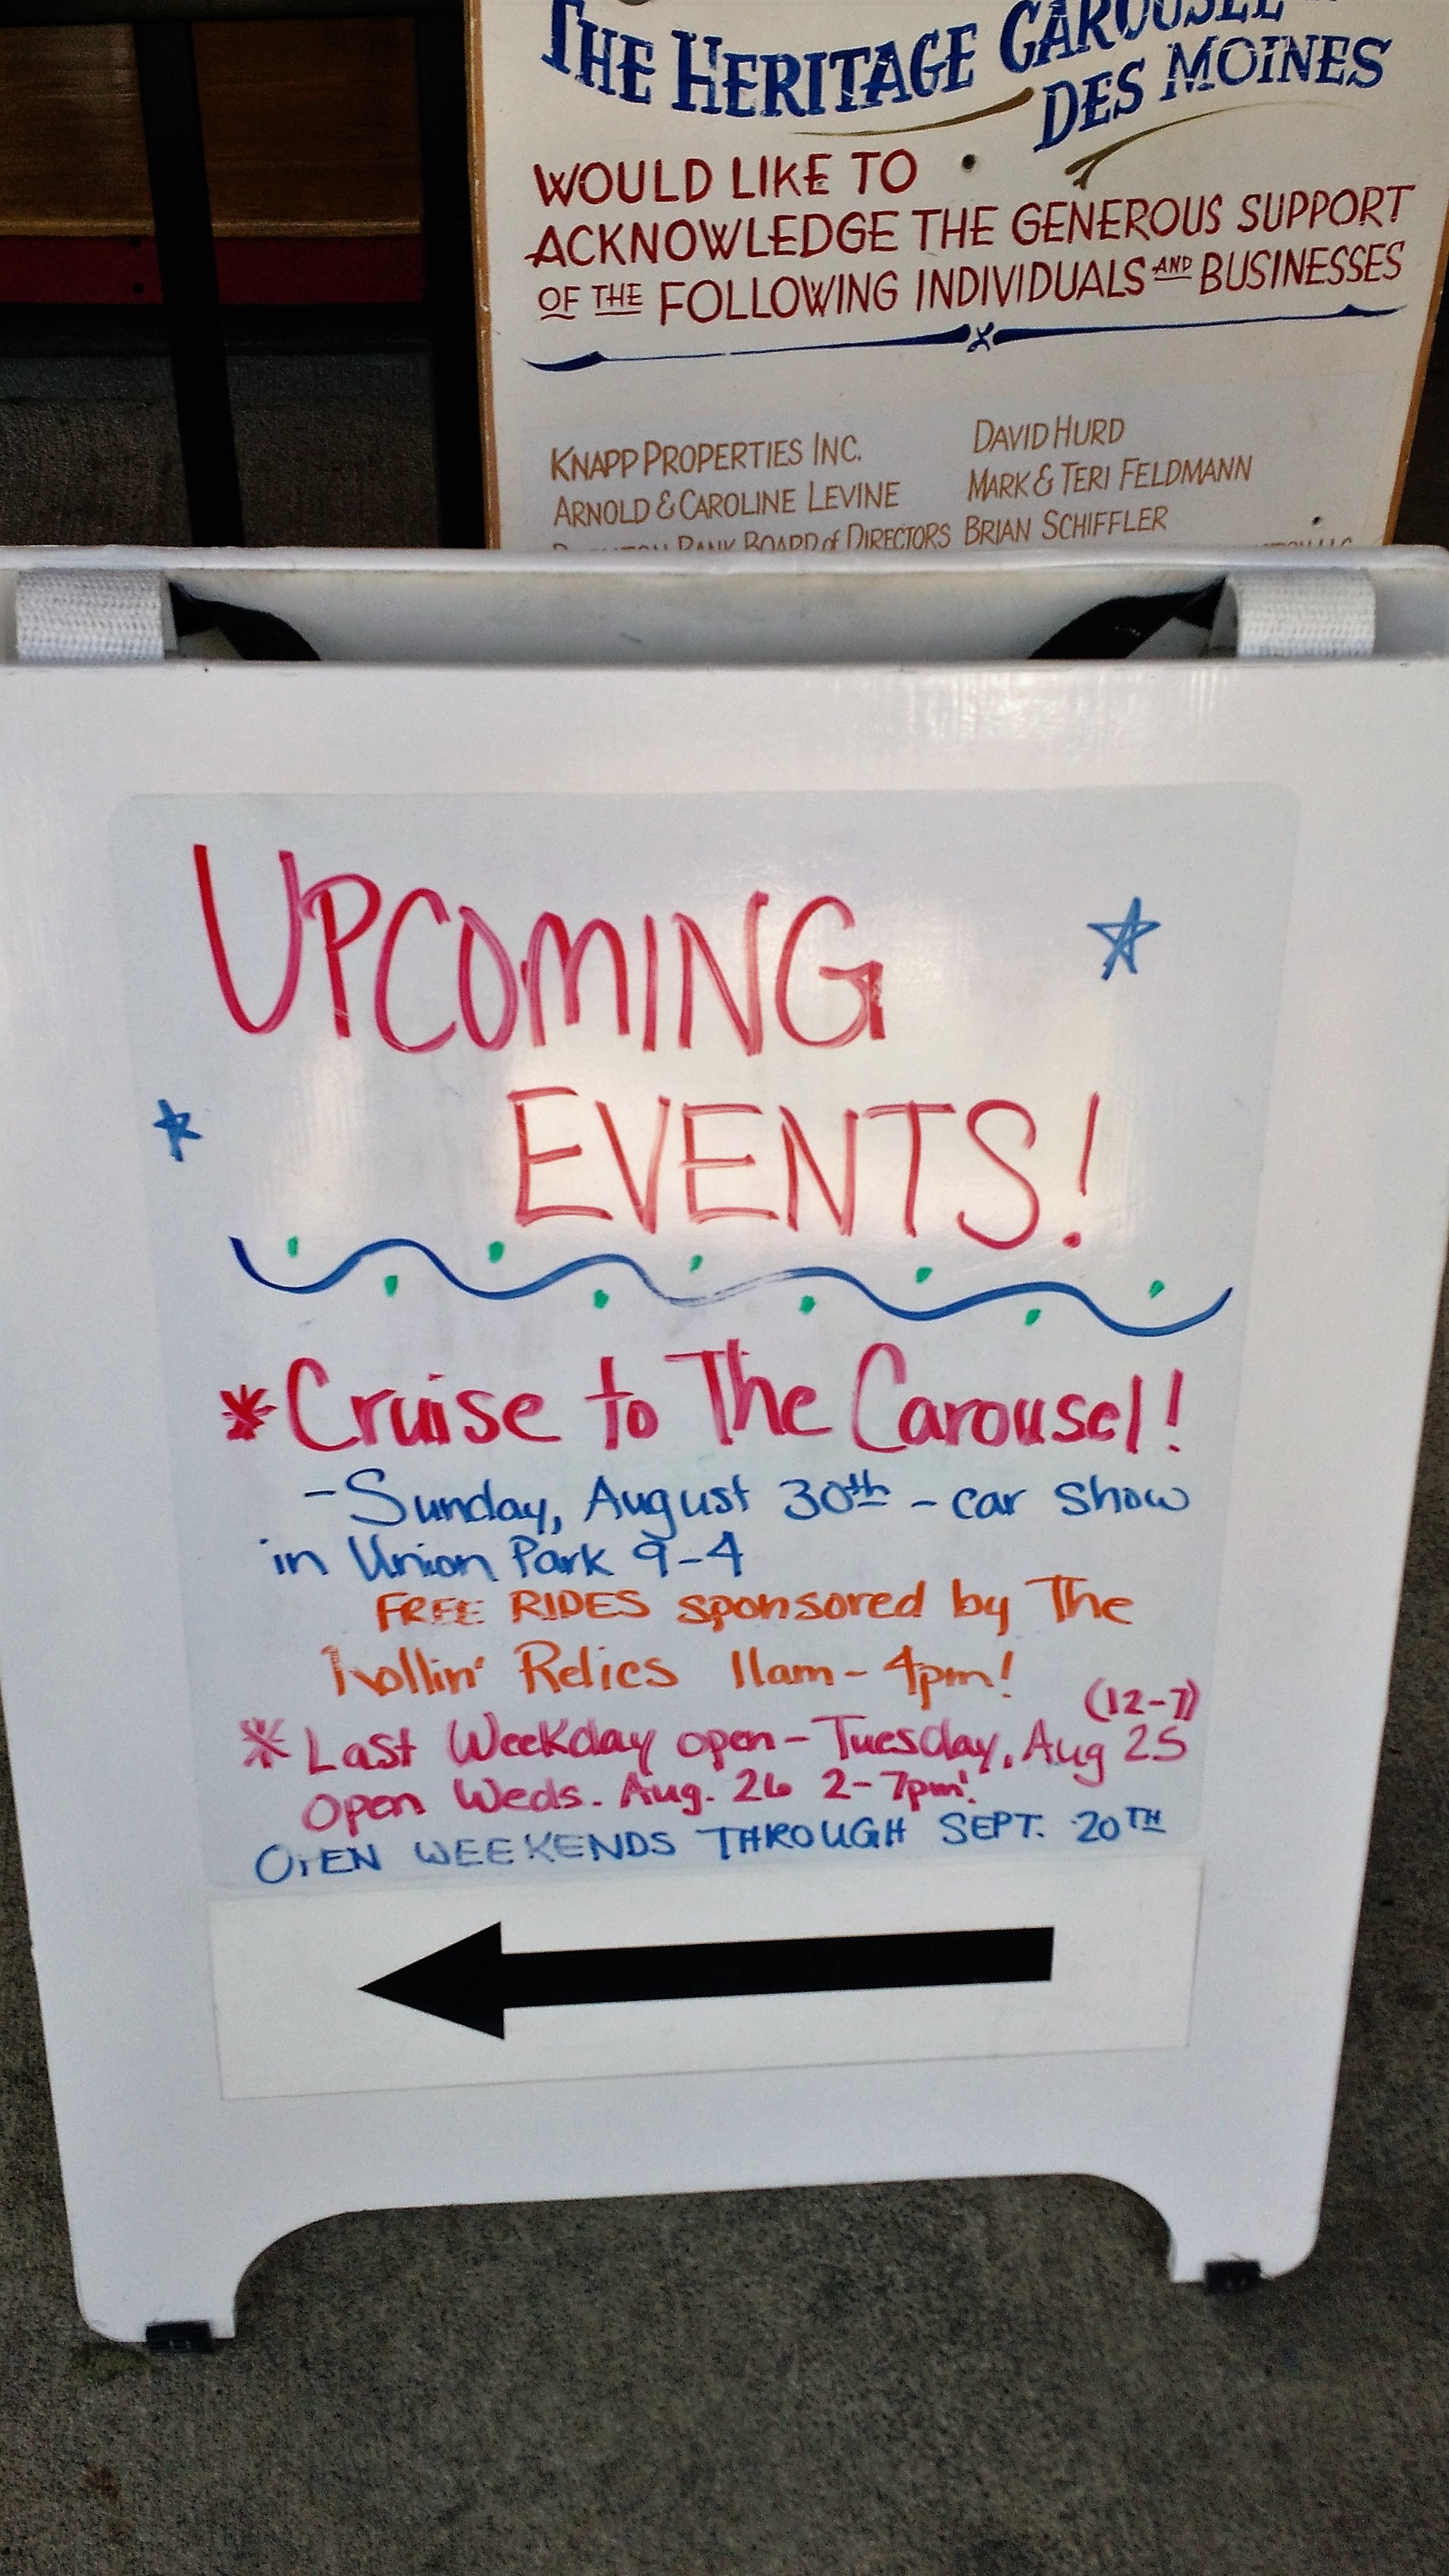 THE HERITAGE CAROUSEL
DES MOINES
WOULD LIKE TO
ACKNOWLEDGE THE GENEROUS SUPPORT
OF THE FOLLOWING INDIVIDUALS AND BUSINESSES
KNAPP PROPERTIES INC.
ARNOLD & CAROLINE LEVINE
BANK BOARD of DIRECTORS
DAVID HURD
MARK & TERI FELDMANN
BRIAN SCHIFFLER
UPCOMING
EVENTS!
*Cruise to The Carousel!
-Sunday, August 30th - car show
in Union Park 9-4
FREE RIDES sponsored by The
Rollin' Relics 11am-4pm!
(12-7)
*Last Weekday open-Tuesday, Aug 25
open Weds. Aug. 26 2-7pm!
OPEN WEEKENDS THROUGH SEPT. 20TH